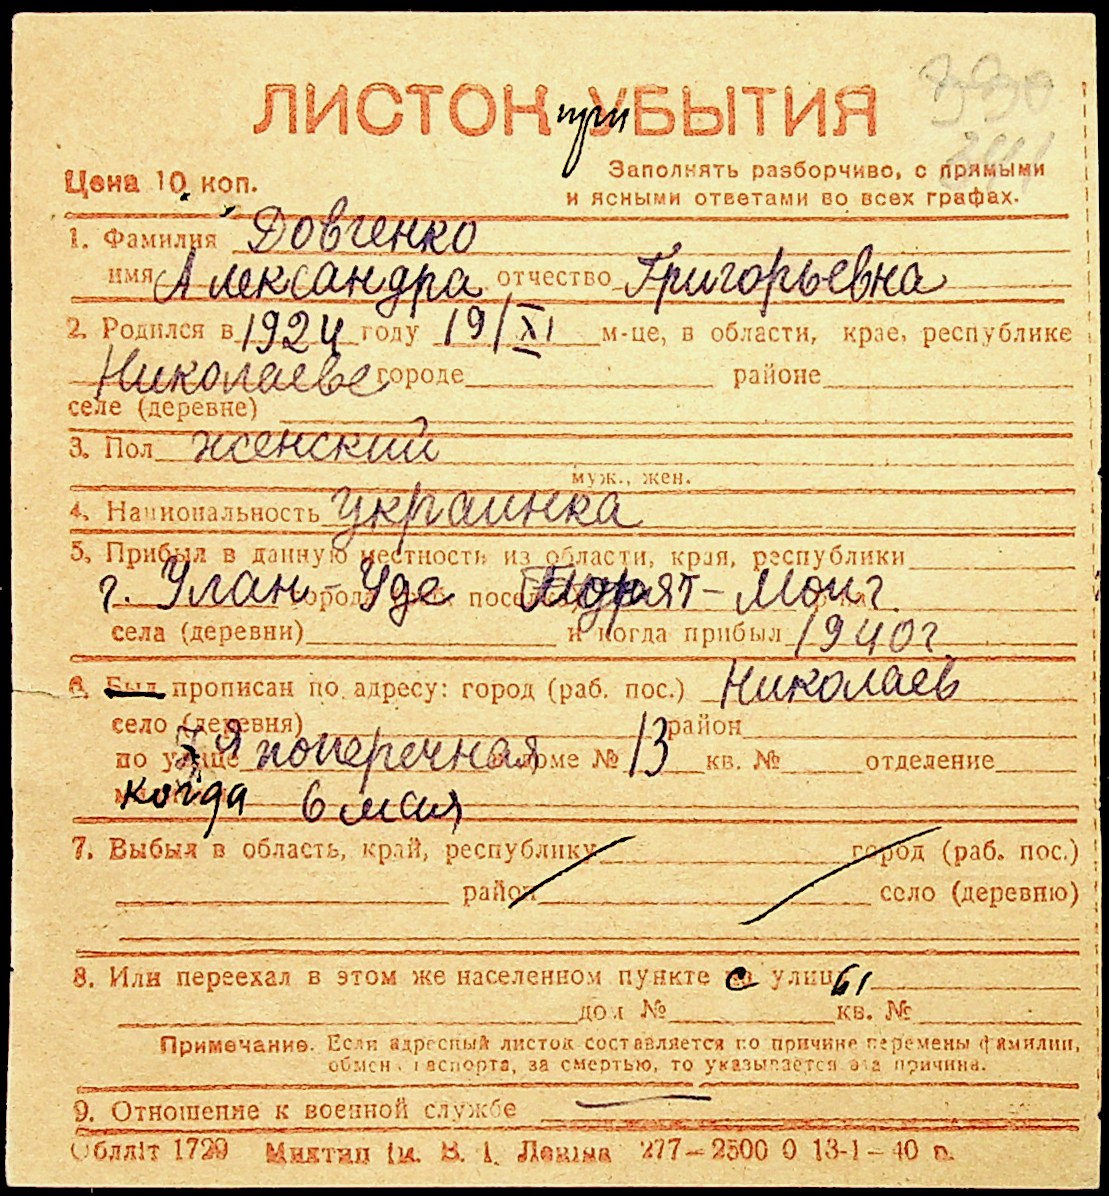 ЛИСТОК при УБЫТИЯ
Цена 10 коп.
Заполнять разборчиво, с прямыми
и ясными ответами во всех графах.
1. Фамилия Довгенко
имя Александра отчество Григорьевна
2. Родился в 1924 году 19/XI м-це, в области, крае, республике
Николаеве городе районе
селе (деревне)
3. Пол женский
муж., жен.
4. Национальность украинка
5. Прибыл в данную местность из области, края, республики
г. Улан-Уде города посел Бурят-Монг.
села (деревни) и когда прибыл 1940г
6. Был прописан по адресу: город (раб. пос.) Николаев
село (деревня) район
по улице 7я поперечная доме № 13 кв. № отделение
когда 6 мая
7. Выбыл в область, край, республику город (раб. пос.)
район село (деревню)
8. Или переехал в этом же населенном пункте с улицы
дом № кв. №
Примечание. Если адресный листок составляется по причине перемены фамилии,
обмена паспорта, за смертью, то указывается эта причина.
9. Отношение к военной службе
Обллiт 1729 Миктип iм. В. I. Ленiна 277—2500 0 13-1—40 р.